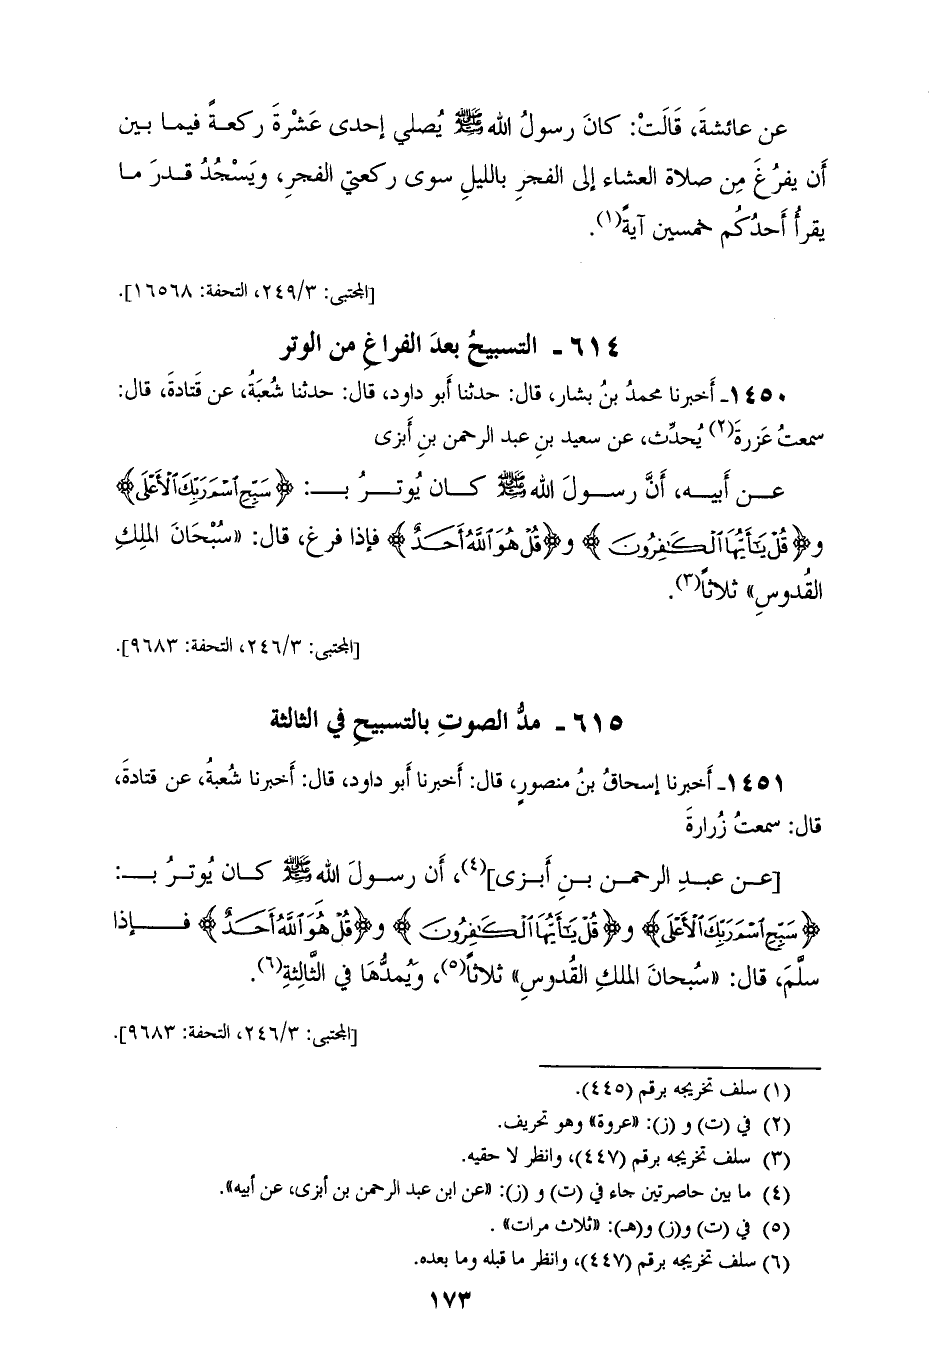 عن عائشةَ، قَالَتْ: كانَ رسولُ الله ﷺ يُصلي إحدى عَشْرةَ ركعـةً فيمـا بـين
أن يفرُغَ مِن صلاة العشاء إلى الفجرِ بالليلِ سوى ركعتي الفجرِ، ويَسْجُدُ قـدرَ مـا
يقرأُ أَحدُكُم خمسين آيةً(١).
[المجتبى: ٢٤٩/٣، التحفة: ١٦٥٦٨].
٦١٤ ـ التسبيحُ بعدَ الفراغِ من الوتر
١٤٥٠ـ أَخبرنا محمدُ بنُ بشار، قال: حدثنا أَبو داود، قال: حدثنا شُعبَةُ، عن قَتادَةَ، قال:
سمعتُ عَزرةَ(٢) يُحدِّث، عن سعيد بنِ عبد الرحمن بنِ أَبزى
عـن أَبيـه، أَنَّ رسـولَ الله ﷺ كـان يُوتـرُ بـ: ﴿سَبِّحِ ٱسْمَ رَبِّكَ ٱلْأَعْلَى﴾
و﴿قُلْ يَٰٓأَيُّهَا ٱلْكَٰفِرُونَ﴾ و﴿قُلْ هُوَ ٱللَّهُ أَحَدٌ﴾ فإذا فرغ، قال: «سُبْحَانَ الملِكِ
القُدوسِ» ثلاثاً(٣).
[المجتبى: ٢٤٦/٣، التحفة: ٩٦٨٣].
٦١٥ ـ مدُّ الصوتِ بالتسبيحِ في الثالثة
١٤٥١ـ أَخبرنا إسحاقُ بنُ منصورٍ، قال: أَخبرنا أَبو داود، قال: أَخبرنا شُعبةُ، عن قتادةَ،
قال: سمعتُ زُرارةَ
[عـن عبـدِ الرحمـن بـنِ أَبـزى](٤)، أَن رسـولَ الله ﷺ كـان يُوتـرُ بـ:
﴿سَبِّحِ ٱسْمَ رَبِّكَ ٱلْأَعْلَى﴾ و﴿قُلْ يَٰٓأَيُّهَا ٱلْكَٰفِرُونَ﴾ و﴿قُلْ هُوَ ٱللَّهُ أَحَدٌ﴾ فـإذا
سلَّمَ، قال: «سُبحانَ الملكِ القُدوسِ» ثلاثاً(٥)، ويَمُدُّهَا في الثَّالِثةِ(٦).
[المجتبى: ٢٤٦/٣، التحفة: ٩٦٨٣].
(١) سلف تخريجه برقم (٤٤٥).
(٢) في (ت) و (ز): «عروة» وهو تحريف.
(٣) سلف تخريجه برقم (٤٤٧)، وانظر لا حقيه.
(٤) ما بين حاصرتين جاء في (ت) و (ز): «عن ابن عبد الرحمن بن أبزى، عن أبيه».
(٥) في (ت) و(ز) و(هـ): «ثلاث مرات» .
(٦) سلف تخريجه برقم (٤٤٧)، وانظر ما قبله وما بعده.
١٧٣